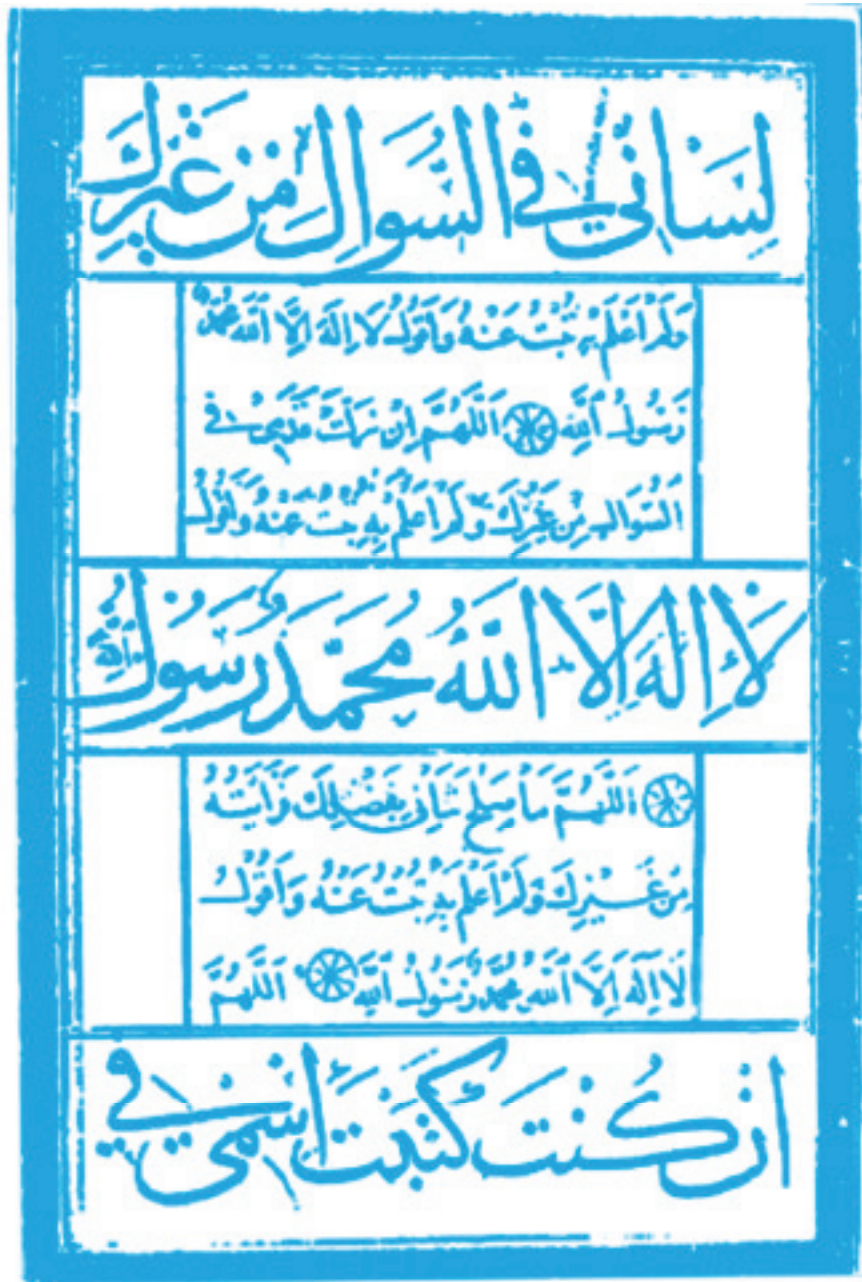 لِسَانِي فِي السُّوَالِ مِنْ غَيْرِكَ
وَلَمْ اَعْلَمْ بِهِ تُبْتُ عَنْهُ وَاَقُولُ لَا اِلٰهَ اِلَّا اَللّٰهُ مُحَمَّدٌ
رَسُولُ اَللّٰهِ اَللّٰهُمَّ اِنْ زَلَّتْ قَدَمِي فِي
السُّوَالِ مِنْ غَيْرِكَ وَلَمْ اَعْلَمْ بِهِ تُبْتُ عَنْهُ وَاَقُولُ
لَا اِلٰهَ اِلَّا اللّٰهُ مُحَمَّدٌ رَسُولُ اللّٰهِ
اَللّٰهُمَّ مَا صَلُحَ شَانِي بِفَضْلِكَ وَرَاَيْتُهُ
مِنْ غَيْرِكَ وَلَمْ اَعْلَمْ بِهِ تُبْتُ عَنْهُ وَاَقُولُ
لَا اِلٰهَ اِلَّا اَللّٰهُ مُحَمَّدٌ رَسُولُ اَللّٰهِ اَللّٰهُمَّ
اِنْ كُنْتَ كَتَبْتَ اِسْمِي فِي